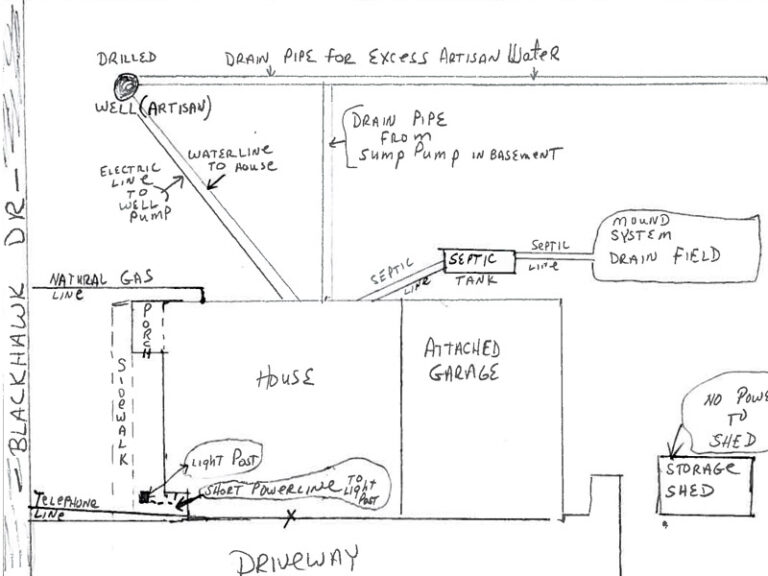 DRILLED
WELL (ARTISAN)
DRAIN PIPE FOR EXCESS ARTISAN WATER
DRAIN PIPE
FROM
SUMP PUMP IN BASEMENT
WATERLINE
TO HOUSE
ELECTRIC
LINE
TO
WELL
PUMP
BLACKHAWK DR
MOUND
SYSTEM
DRAIN FIELD
SEPTIC
LINE
SEPTIC
TANK
SEPTIC
LINE
NATURAL GAS
LINE
PORCH
SIDEWALK
HOUSE
ATTACHED
GARAGE
NO POWE
TO
SHED
STORAGE
SHED
LIGHT POST
SHORT POWERLINE TO LIGHT POST
TELEPHONE
LINE
X
DRIVEWAY